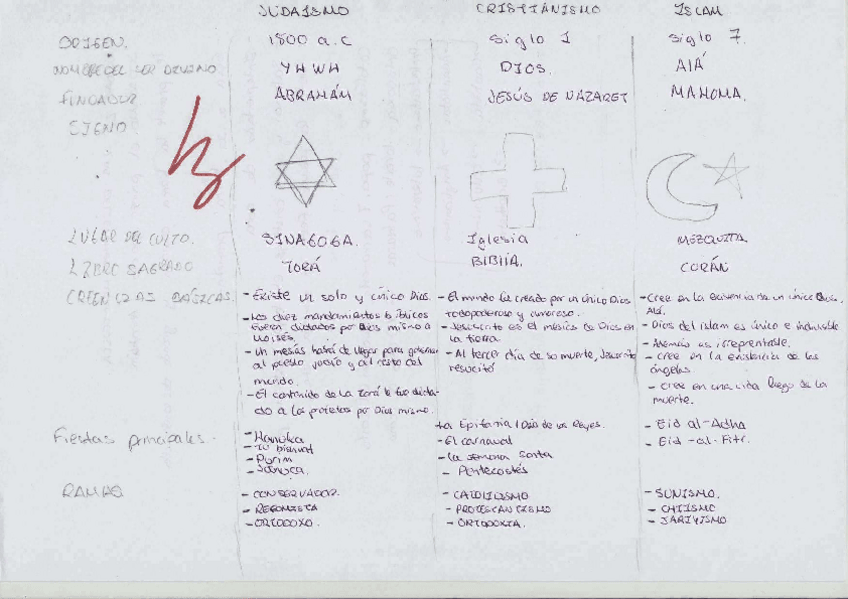 JUDAISMO CRISTIANISMO ISLAM
ORIGEN. 1800 a.c Siglo 1 Siglo 7.
NOMBRE DEL SER DIVINO YHWH DIOS. AlÁ
FUNDADOR ABRAHÁM JESÚS DE NAZARET MAHOMA.
SIGNO
LUGAR DEL CULTO. SINAGOGA. Iglesia MEZQUITA.
LIBRO SAGRADO TORÁ BIBLIA. CORÁN
CREENCIAS BÁSICAS
- Existe un solo y único Dios.
- Los diez mandamientos bíblicos
fueron dictados por Dios mismo a
Moisés.
- Un mesías habrá de llegar para gobernar
al pueblo judío y al resto del
mundo.
- El contenido de la Torá le fue dicta-
do a los profetas por Dios mismo.
- El mundo fue creado por un único Dios
todopoderoso y amoroso.
- Jesucristo es el mesías de Dios en
la tierra.
- Al tercer día de su muerte, Jesucristo
resucitó
- Cree en la existencia de un único Dios.
Alá.
- Dios del islam es único e
- Además es
- Cree en la existencia de los
ángeles
- Cree en una vida luego de la
muerte.
Fiestas principales.
- Hanuka
- Tu bishvat
- Purim
-
La Epifanía / Día de los Reyes.
- El carnaval
- La semana santa
- Pentecostés
- Eid al-Adha
- Eid -al-Fitr.
RAMAS
- CONSERVADOR.
- REFORMISTA
- ORTODOXO.
- CATOLICISMO
- PROTESTANTISMO
- ORTODOXIA.
- SUNISMO.
- CHIISMO
- JARIYISMO